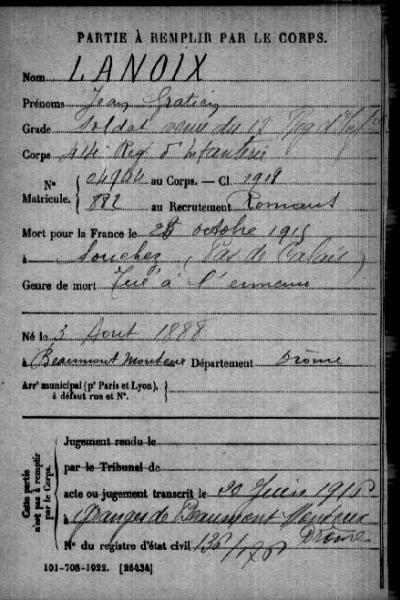 PARTIE À REMPLIR PAR LE CORPS.
Nom LANOIX
Prénoms Jean Gratien
Grade Soldat venu du 12 Reg d'Inf
Corps 44e Reg d'Infanterie
Nº 04944 au Corps. — Cl. 1918
Matricule. 882 au Recrutement Romans
Mort pour la France le 28 octobre 1915
à Souchez (Pas de Calais)
Genre de mort Tué à l'ennemi
Né le 3 Aout 1888
à Beaumont Monteux Département Drôme
Arrt municipal (pr Paris et Lyon),
à défaut rue et Nº.
Cette partie
n'est pas à remplir
par le Corps.
Jugement rendu le
par le Tribunal de
acte ou jugement transcrit le 20 Juin 1916
à Granges de Beaumont Monteux
Drôme
Nº du registre d'état civil 136/176
101-708-1922. [26434]